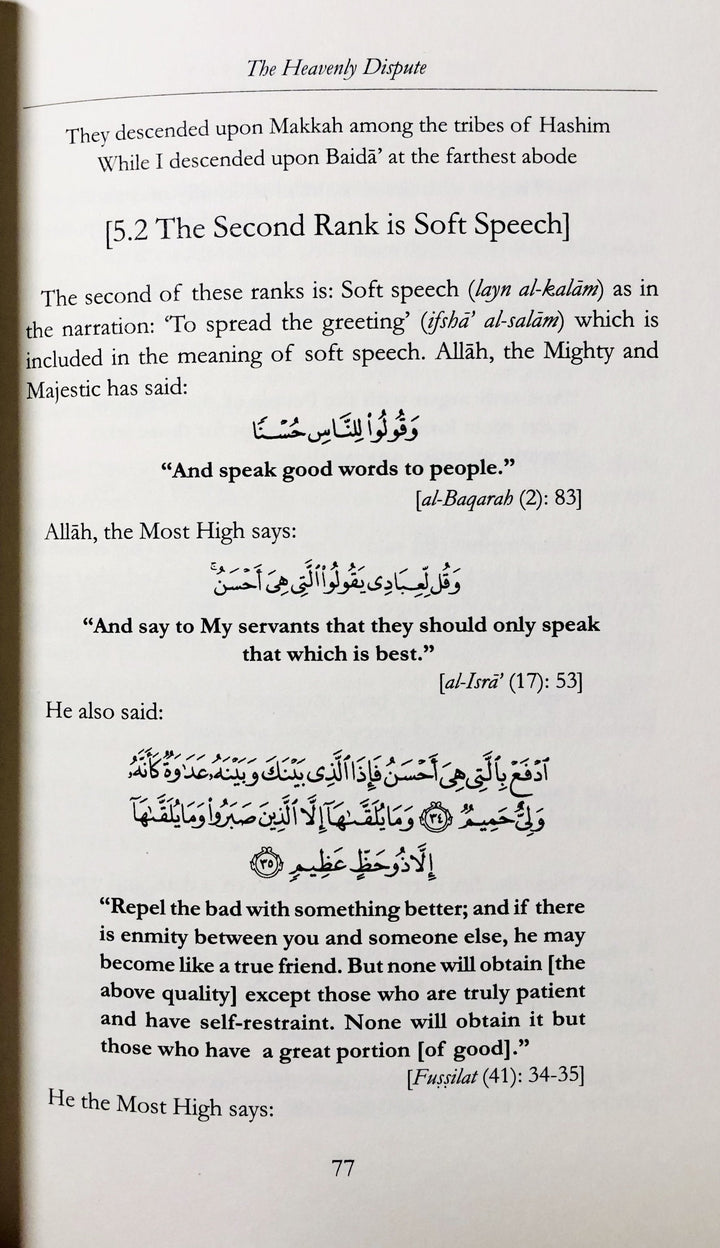 The Heavenly Dispute
They descended upon Makkah among the tribes of Hashim
While I descended upon Baidā’ at the farthest abode
[5.2 The Second Rank is Soft Speech]
The second of these ranks is: Soft speech (layn al-kalām) as in
the narration: ‘To spread the greeting’ (ifshā’ al-salām) which is
included in the meaning of soft speech. Allāh, the Mighty and
Majestic has said:
وَقُولُوا۟ لِلنَّاسِ حُسْنًا
“And speak good words to people.”
[al-Baqarah (2): 83]
Allāh, the Most High says:
وَقُل لِّعِبَادِى يَقُولُوا۟ ٱلَّتِى هِىَ أَحْسَنُ ۚ
“And say to My servants that they should only speak
that which is best.”
[al-Isrā’ (17): 53]
He also said:
ٱدْفَعْ بِٱلَّتِى هِىَ أَحْسَنُ فَإِذَا ٱلَّذِى بَيْنَكَ وَبَيْنَهُۥ عَدَٰوَةٌ كَأَنَّهُۥ
وَلِىٌّ حَمِيمٌ ﴿٣٤﴾ وَمَا يُلَقَّىٰهَآ إِلَّا ٱلَّذِينَ صَبَرُوا۟ وَمَا يُلَقَّىٰهَآ
إِلَّا ذُو حَظٍّ عَظِيمٍ ﴿٣٥﴾
“Repel the bad with something better; and if there
is enmity between you and someone else, he may
become like a true friend. But none will obtain [the
above quality] except those who are truly patient
and have self-restraint. None will obtain it but
those who have a great portion [of good].”
[Fuṣṣilat (41): 34-35]
He the Most High says:
77